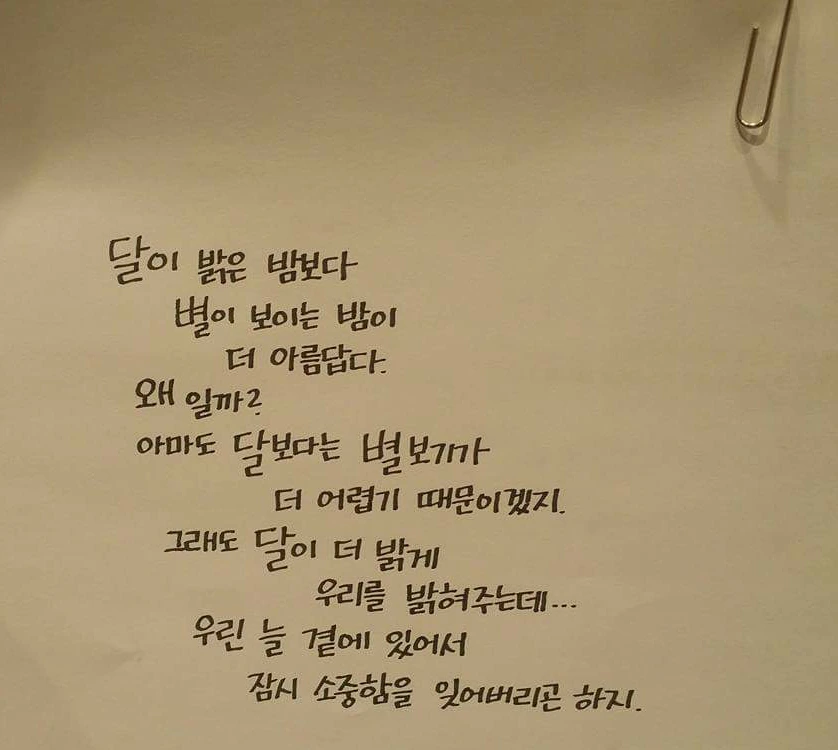 달이 밝은 밤보다
별이 보이는 밤이
더 아름답다.
왜 일까?
아마도 달보다는 별보기가
더 어렵기 때문이겠지.
그래도 달이 더 밝게
우리를 밝혀주는데...
우린 늘 곁에 있어서
잠시 소중함을 잊어버리곤 하지.